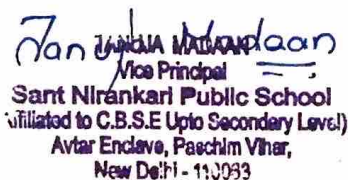 Madaan
MADAAN
Vice Principal
Sant Nirankari Public School
(Affiliated to C.B.S.E Upto Secondary Level)
Avtar Enclave, Paschim Vihar,
New Delhi - 110063